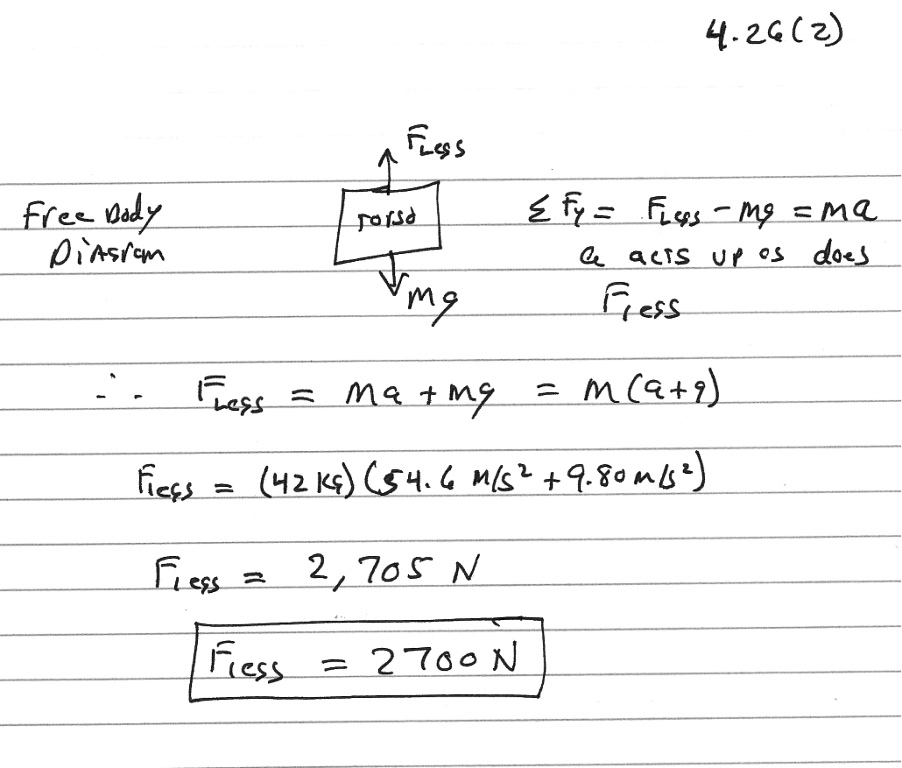 4.26(2)
FLegs
Free Body
Diagram
Torso
mg
Σ Fy = FLegs - mg = ma
a acts up as does
FLegs
∴ FLegs = ma + mg = m(a+g)
FLegs = (42 kg) (54.6 m/s² + 9.80 m/s²)
FLegs = 2,705 N
FLegs = 2700 N